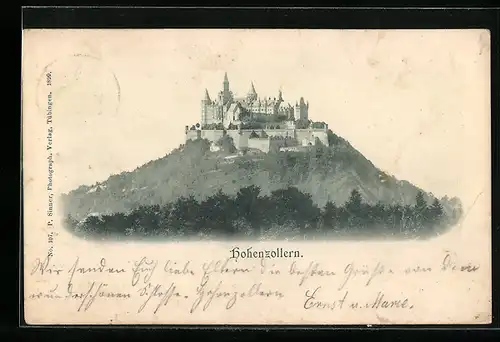 No. 107. P. Sinner, Photograph, Verlag, Tübingen. 1899.
Hohenzollern.
Wir senden Euch liebe Eltern die besten Grüße von dem
wunderschönen Schlosse Hohenzollern. Ernst u. Marie.